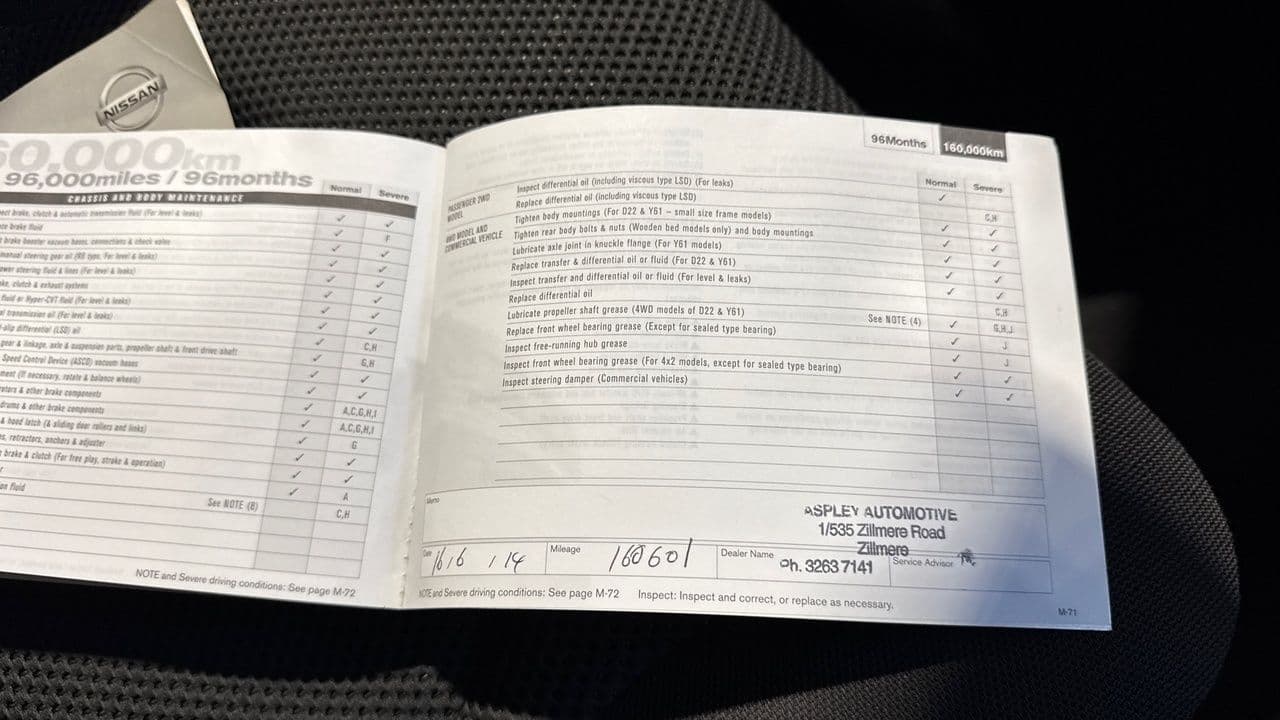 NISSAN
0,000km
96,000miles / 96months
Normal Severe
CHASSIS AND BODY MAINTENANCE
ect brake, clutch & automatic transmission fluid (For level & leaks) ✓ ✓
ce brake fluid ✓ F
brake booster vacuum hoses, connections & check valve ✓ ✓
manual steering gear oil (RB type, For level & leaks) ✓ ✓
ower steering fluid & lines (For level & leaks) ✓ ✓
ke, clutch & exhaust systems ✓ ✓
fluid or Hyper-CVT fluid (For level & leaks) ✓ ✓
al transmission oil (For level & leaks) ✓ ✓
-slip differential (LSD) oil ✓ C,H
gear & linkage, axle & suspension parts, propeller shaft & front drive shaft ✓ G,H
Speed Control Device (ASCD) vacuum hoses ✓ ✓
ment (If necessary, rotate & balance wheels) ✓ ✓
rotors & other brake components ✓ A,C,G,H,I
drums & other brake components ✓ A,C,G,H,I
& hood latch (& sliding door rollers and links) ✓ G
s, retractors, anchors & adjuster ✓ ✓
brake & clutch (For free play, stroke & operation) ✓ ✓
r ✓ A
on fluid See NOTE (8) C,H
NOTE and Severe driving conditions: See page M-72
96Months 160,000km
Normal Severe
PASSENGER 2WD
MODEL
Inspect differential oil (including viscous type LSD) (For leaks) ✓
Replace differential oil (including viscous type LSD) C,H
4WD MODEL AND
COMMERCIAL VEHICLE
Tighten body mountings (For D22 & Y61 – small size frame models) ✓ ✓
Tighten rear body bolts & nuts (Wooden bed models only) and body mountings ✓ ✓
Lubricate axle joint in knuckle flange (For Y61 models) ✓ ✓
Replace transfer & differential oil or fluid (For D22 & Y61) ✓ ✓
Inspect transfer and differential oil or fluid (For level & leaks) ✓ ✓
Replace differential oil C,H
Lubricate propeller shaft grease (4WD models of D22 & Y61) See NOTE (4) ✓ G,H,J
Replace front wheel bearing grease (Except for sealed type bearing) ✓ J
Inspect free-running hub grease ✓ J
Inspect front wheel bearing grease (For 4x2 models, except for sealed type bearing) ✓ ✓
Inspect steering damper (Commercial vehicles) ✓ ✓
Memo
ASPLEY AUTOMOTIVE
1/535 Zillmere Road
Zillmere
Ph. 3263 7141
Date 16 / 6 / 14 Mileage 160601 Dealer Name Service Advisor
NOTE and Severe driving conditions: See page M-72 Inspect: Inspect and correct, or replace as necessary.
M-71